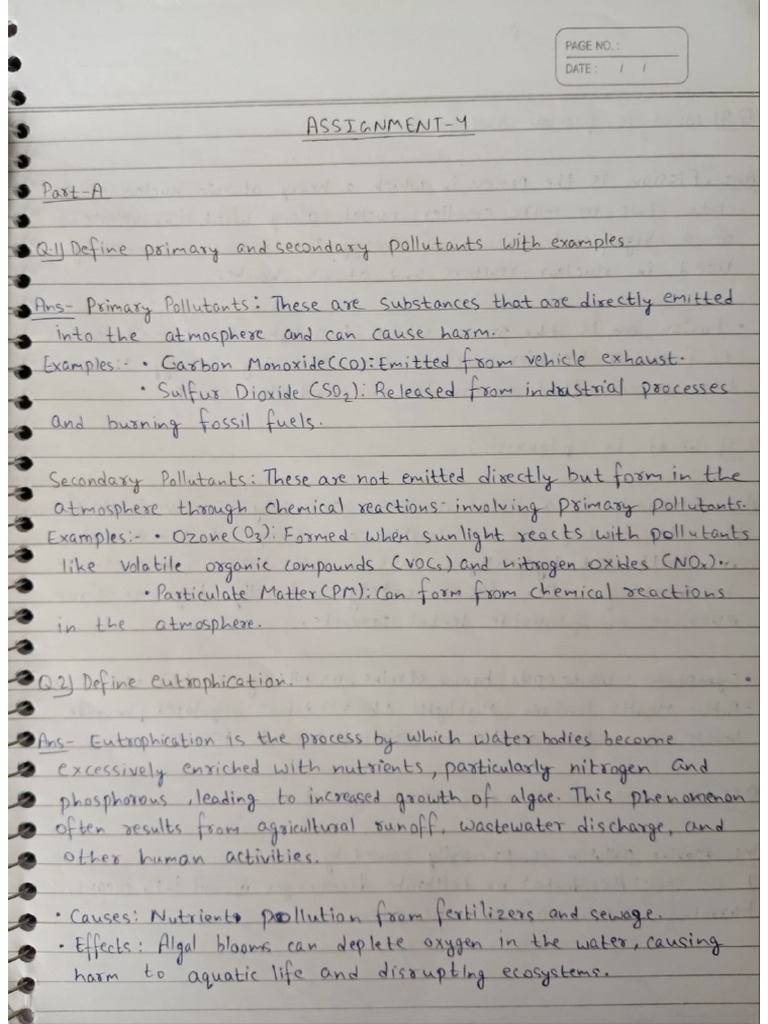 PAGE NO. :
DATE : / /
ASSIGNMENT-4
Part-A
Q.1) Define primary and secondary pollutants with examples.
Ans- Primary Pollutants: These are substances that are directly emitted
into the atmosphere and can cause harm.
Examples:- • Carbon Monoxide (CO): Emitted from vehicle exhaust.
• Sulfur Dioxide (SO₂): Released from industrial processes
and burning fossil fuels.
Secondary Pollutants: These are not emitted directly but form in the
atmosphere through chemical reactions involving primary pollutants.
Examples:- • Ozone (O₃): Formed when sunlight reacts with pollutants
like volatile organic compounds (VOCs) and nitrogen oxides (NOₓ).
• Particulate Matter (PM): Can form from chemical reactions
in the atmosphere.
Q.2) Define eutrophication.
Ans- Eutrophication is the process by which water bodies become
excessively enriched with nutrients, particularly nitrogen and
phosphorous, leading to increased growth of algae. This phenomenon
often results from agricultural runoff, wastewater discharge, and
other human activities.
• Causes: Nutrient Pollution from fertilizers and sewage.
• Effects: Algal blooms can deplete oxygen in the water, causing
harm to aquatic life and disrupting ecosystems.